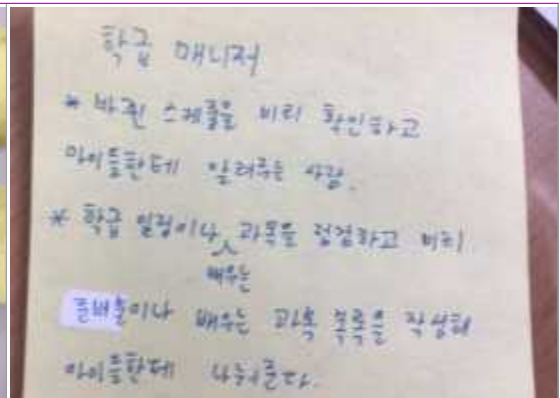 학급 매니저
* 바뀐 스케줄을 미리 확인하고
아이들한테 알려주는 사람.
* 학급 일정이나 과목을 점검하고 미리
배우는
준비물이나 배우는 과목 목록을 작성해
아이들한테 나눠준다.